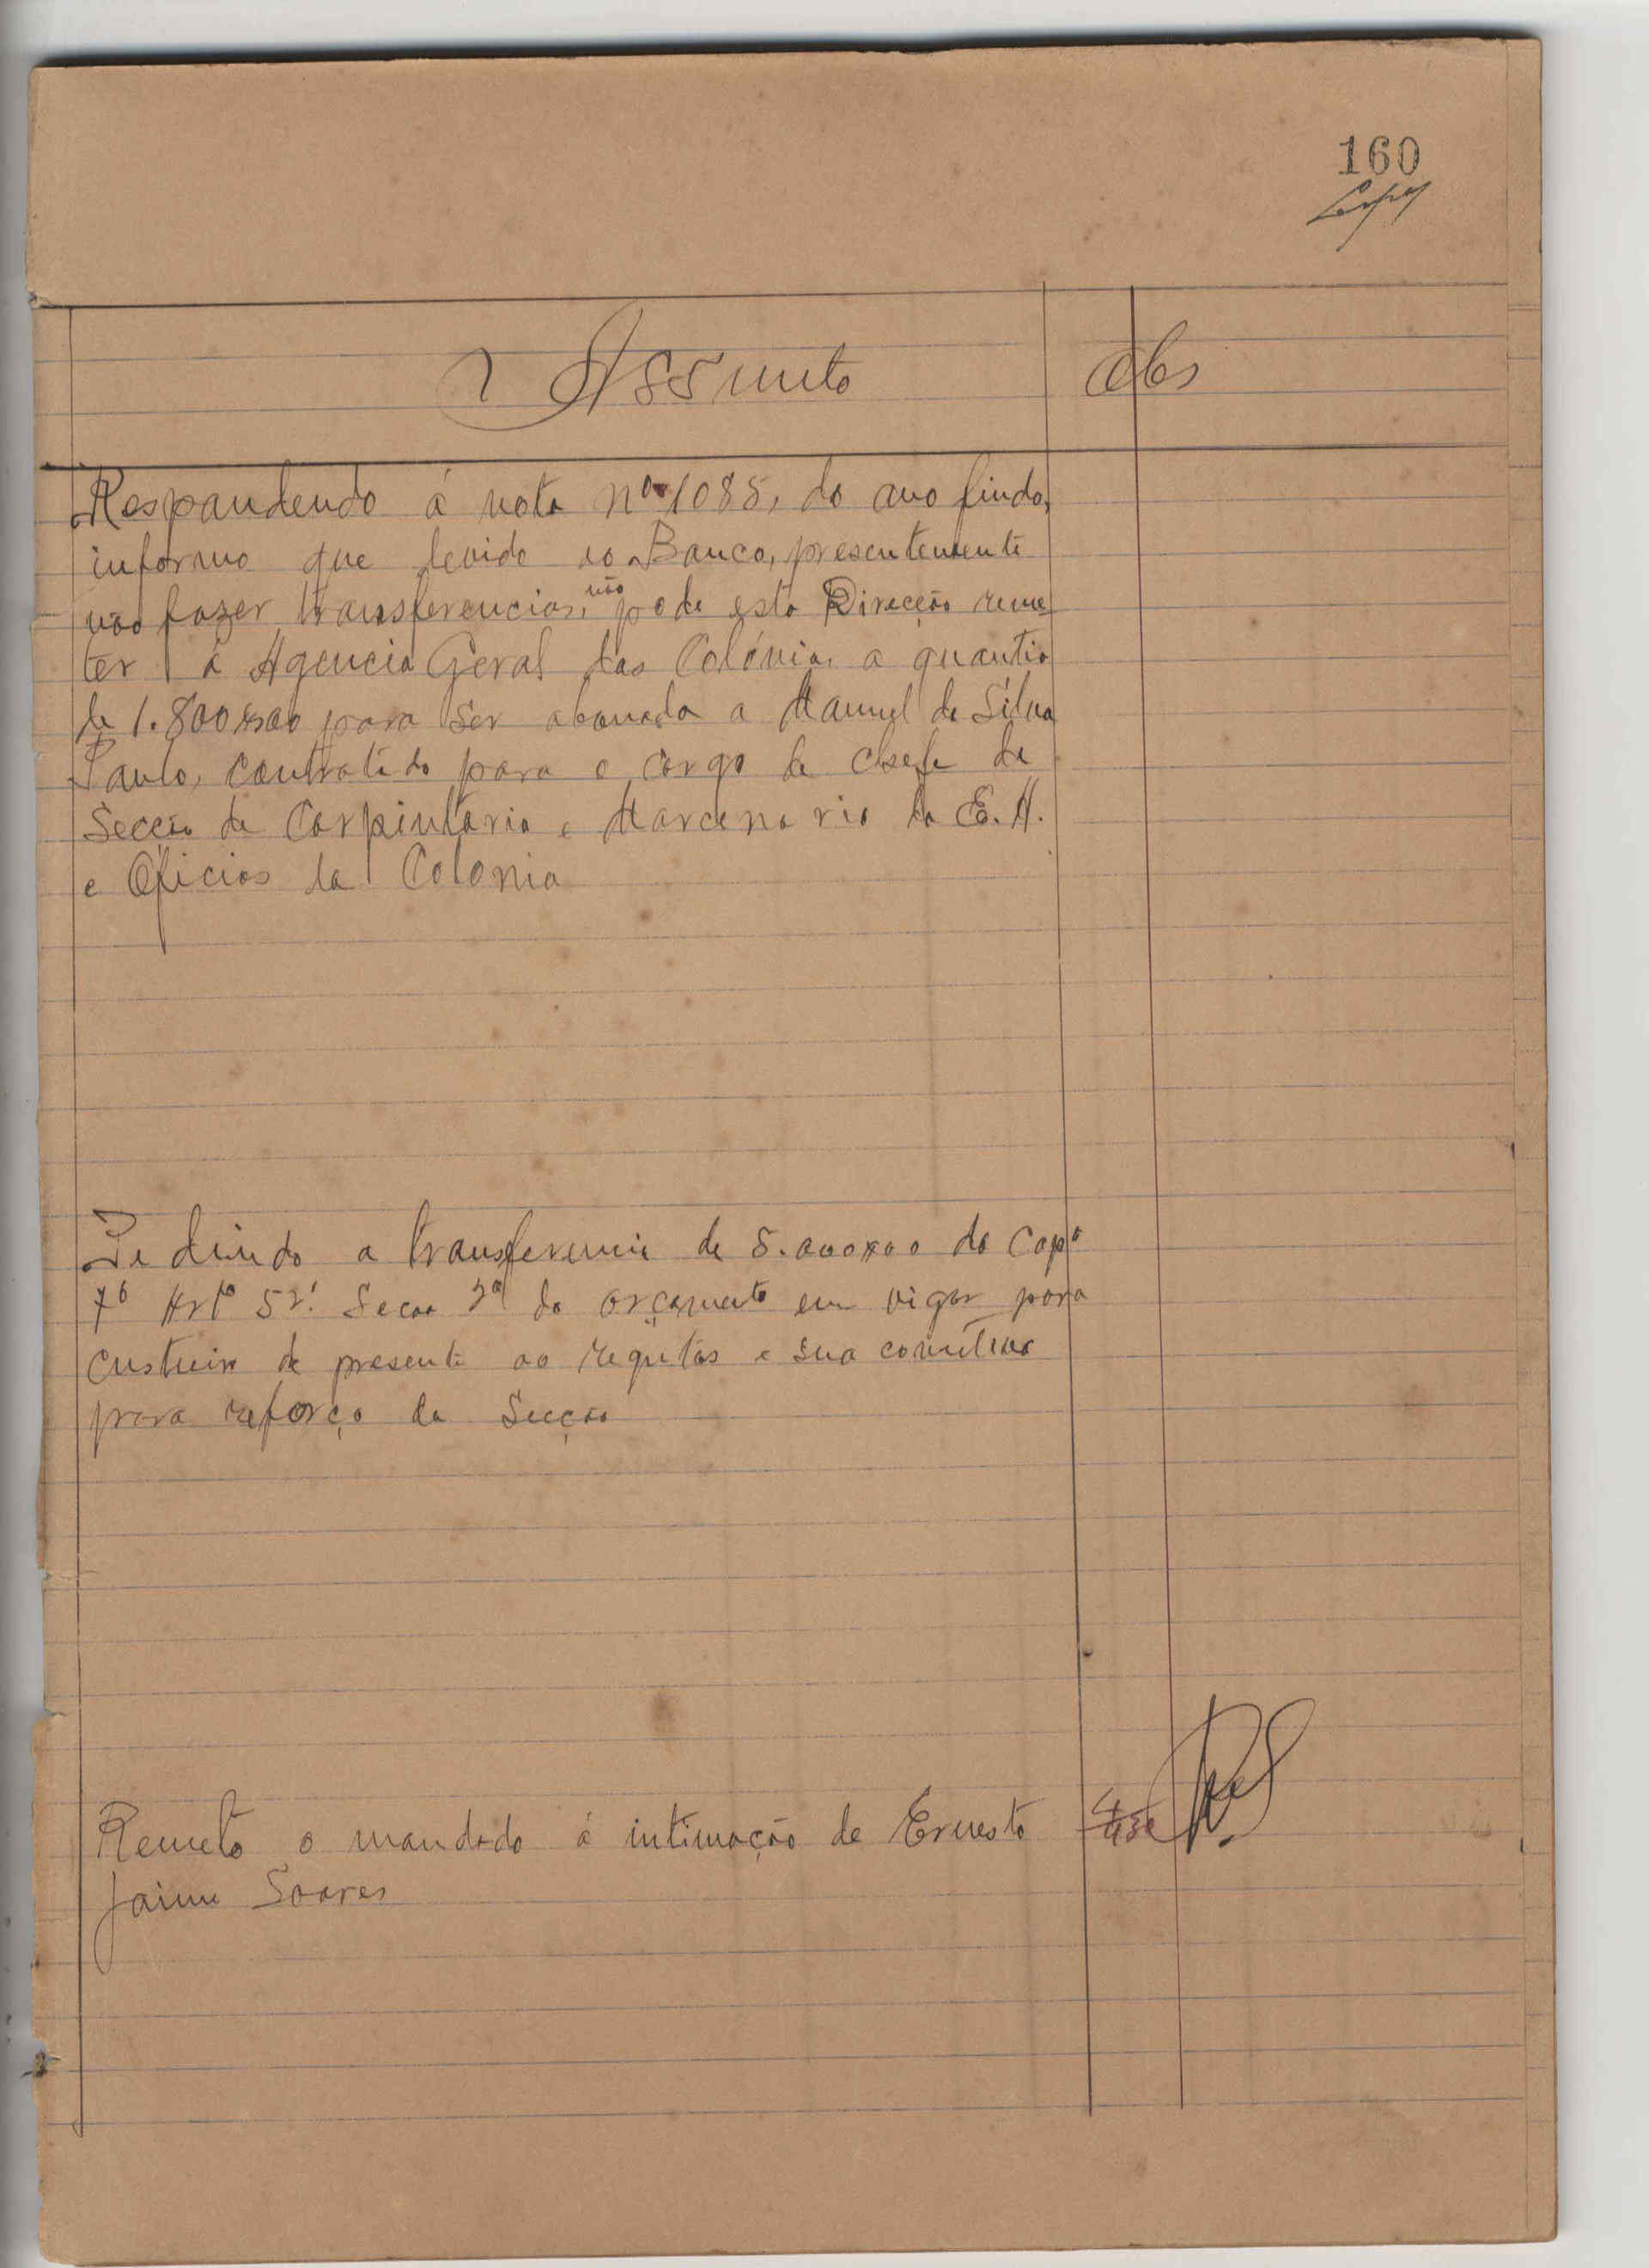 160
Assunto
Obs
Respondendo á nota nº 1085, do ano findo,
informo que devido ao Banco, presentemente
não fazer transferencias, não pode esta Direcção reme
ter á Agencia Geral das Colónias a quantia
de 1.800$00 para ser abonada a Manuel da Silva
Paulo, contratado para o cargo de chefe de
Secção de Carpintaria e Marcenaria da E. A.
e Oficios da Colonia
Pedindo a transferencia de 5.000$00 do Capº
7º Artº 52º Secão do orçamento em vigor para
custeio de presente ao regulos e sua comitiva
para reforço da Secção
Remeto o mandado á intimação de Ernesto
Jaime Soares